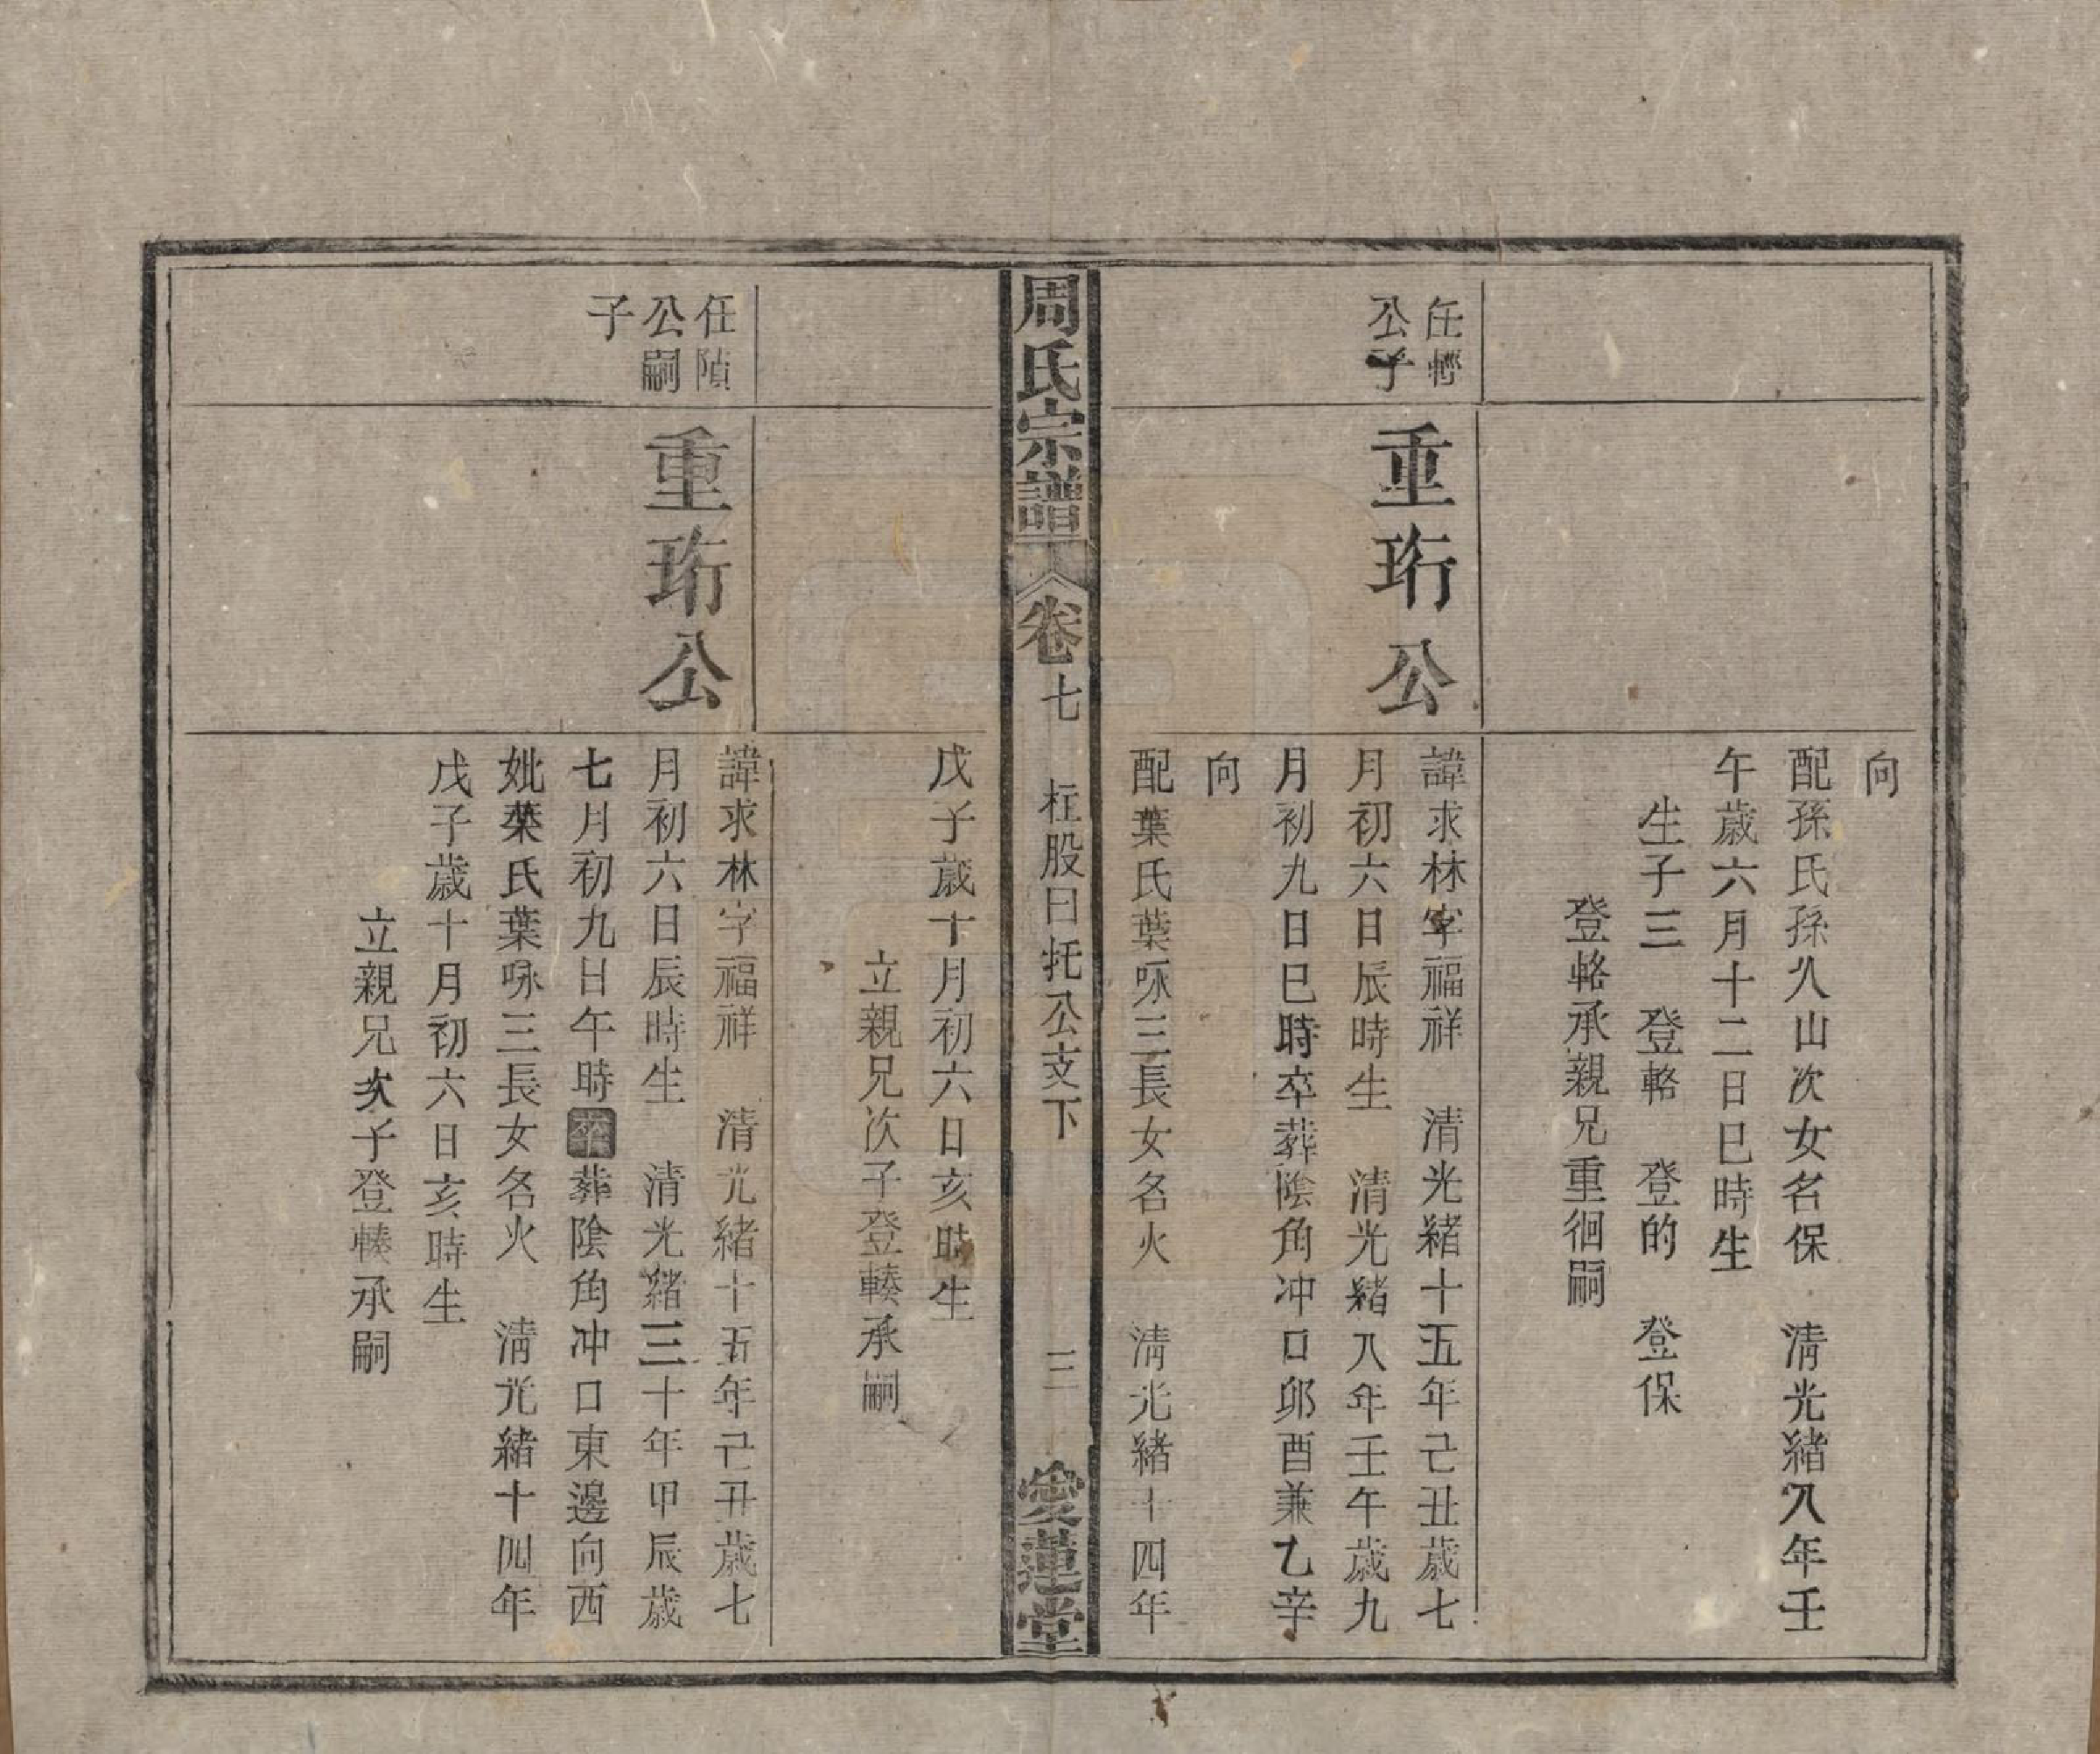 向
配孫氏孫久山次女名保　清光緒八年壬
午歲六月十二日巳時生
生子三　登輅　登的　登保
登輅承親兄重徊嗣
任輕
公子
重珩公
諱求林字福祥　清光緒十五年己丑歲七
月初六日辰時生　清光緒八年壬午歲九
月初九日巳時卒葬陰角冲口卯酉兼乙辛
向
配葉氏葉咏三長女名火　清光緒十四年
周氏宗譜
卷七
枉股曰托公支下
三
愛蓮堂
戊子歲十月初六日亥時生
立親兄次子登轃承嗣
任隫
公嗣
子
重珩公
諱求林字福祥　清光緒十五年己丑歲七
月初六日辰時生　清光緒三十年甲辰歲
七月初九日午時卒葬陰角冲口東邊向西
妣葉氏葉咏三長女名火　清光緒十四年
戊子歲十月初六日亥時生
立親兄次子登轃承嗣